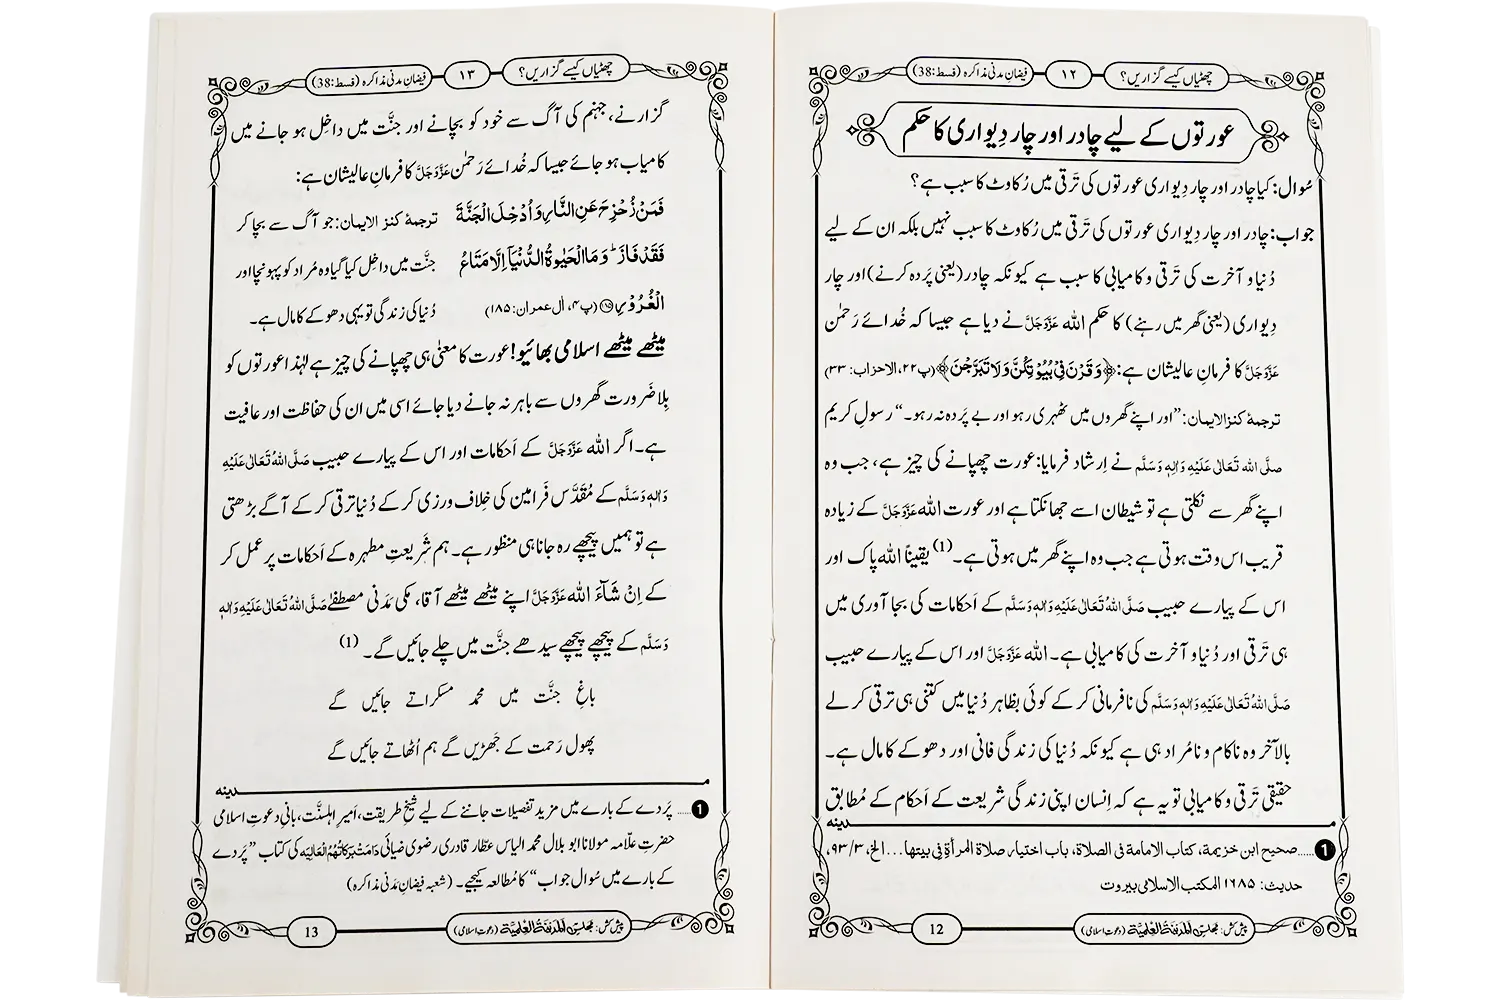 چھٹیاں کیسے گزاریں؟ ١٢ فیضانِ مدنی مذاکرہ (قسط:38)
عورتوں کے لیے چادر اور چار دِیواری کا حکم
سُوال: کیا چادر اور چار دِیواری عورتوں کی تَرقی میں رُکاوٹ کا سبب ہے؟
جواب: چادر اور چار دِیواری عورتوں کی تَرقی میں رُکاوٹ کا سبب نہیں بلکہ ان کے لیے
دُنیا و آخرت کی تَرقی و کامیابی کا سبب ہے کیونکہ چادر (یعنی پَردہ کرنے) اور چار
دِیواری (یعنی گھر میں رہنے) کا حکم اللہ عَزَّوَجَلَّ نے دیا ہے جیسا کہ خُدائے رَحمٰن
عَزَّوَجَلَّ کا فرمانِ عالیشان ہے: ﴿وَقَرْنَ فِیْ بُیُوْتِكُنَّ وَلَا تَبَرَّجْنَ﴾ (پ٢٢، الاحزاب: ٣٣)
ترجمۂ کنزالایمان: ”اور اپنے گھروں میں ٹھہری رہو اور بے پَردہ نہ رہو۔“ رسولِ کریم
صلَّی اللہ تَعَالٰی عَلَیْہِ وَاٰلِہٖ وَسَلَّم نے اِرشاد فرمایا: عورت چھپانے کی چیز ہے، جب وہ
اپنے گھر سے نکلتی ہے تو شیطان اسے جھانکتا ہے اور عورت اللہ عَزَّوَجَلَّ کے زیادہ
قریب اس وقت ہوتی ہے جب وہ اپنے گھر میں ہوتی ہے۔(1) یقیناً اللہ پاک اور
اس کے پیارے حبیب صَلَّی اللہُ تَعَالٰی عَلَیْہِ وَاٰلِہٖ وَسَلَّم کے اَحکامات کی بجا آوری میں
ہی تَرقی اور دُنیا و آخرت کی کامیابی ہے۔ اللہ عَزَّوَجَلَّ اور اس کے پیارے حبیب
صَلَّی اللہُ تَعَالٰی عَلَیْہِ وَاٰلِہٖ وَسَلَّم کی نافرمانی کر کے کوئی بظاہر دُنیا میں کتنی ہی ترقی کر لے
بالآخر وہ ناکام و نامُراد ہی ہے کیونکہ دُنیا کی زندگی فانی اور دھوکے کا مال ہے۔
حقیقی تَرقی و کامیابی تو یہ ہے کہ اِنسان اپنی زندگی شریعت کے اَحکام کے مُطابق
مدینہ
1 ......صحیح ابن خزیمة، کتاب الامامة فی الصلاة، باب اختیار صلاة المرأة فی بیتها... الخ، ٩٣/٣،
حدیث: ١٦٨٥ المکتب الاسلامی بیروت
پیش کش: مجلس المدینۃ العلمیۃ (دعوتِ اسلامی) 12
چھٹیاں کیسے گزاریں؟ ١٣ فیضانِ مدنی مذاکرہ (قسط:38)
گزارنے، جہنم کی آگ سے خود کو بچانے اور جنَّت میں داخِل ہو جانے میں
کامیاب ہو جائے جیسا کہ خُدائے رَحمٰن عَزَّوَجَلَّ کا فرمانِ عالیشان ہے:
فَمَنْ زُحْزِحَ عَنِ النَّارِ وَاُدْخِلَ الْجَنَّةَ ترجمۂ کنز الایمان: جو آگ سے بچا کر
فَقَدْ فَازَ ؕ وَمَا الْحَیٰوةُ الدُّنْیَاۤ اِلَّا مَتَاعُ جنَّت میں داخِل کیا گیا وہ مُراد کو پہونچا اور
الْغُرُوْرِ ۝١٨٥ (پ٤، اٰل عمران: ١٨٥) دُنیا کی زندگی تو یہی دھوکے کا مال ہے۔
میٹھے میٹھے اسلامی بھائیو! عورت کا معنیٰ ہی چھپانے کی چیز ہے لہٰذا عورتوں کو
بِلا ضَرورت گھروں سے باہر نہ جانے دیا جائے اسی میں ان کی حفاظت اور عافیت
ہے۔ اگر اللہ عَزَّوَجَلَّ کے اَحکامات اور اس کے پیارے حبیب صَلَّی اللہُ تَعَالٰی عَلَیْہِ
وَاٰلِہٖ وَسَلَّم کے مُقَدَّس فَرامین کی خِلاف ورزی کر کے دُنیا ترقی کر کے آگے بڑھتی
ہے تو ہمیں پیچھے رہ جانا ہی منظور ہے۔ ہم شَریعتِ مطہرہ کے اَحکامات پر عمل کر
کے اِنْ شَآءَ اللہ عَزَّوَجَلَّ اپنے میٹھے میٹھے آقا، مکی مَدَنی مصطفےٰ صَلَّی اللہُ تَعَالٰی عَلَیْہِ وَاٰلِہٖ
وَسَلَّم کے پیچھے پیچھے سیدھے جنَّت میں چلے جائیں گے۔(1)
باغِ جنَّت میں محمد مسکراتے جائیں گے
پھول رَحمت کے جَھڑیں گے ہم اُٹھاتے جائیں گے
مدینہ
1 ......پَردے کے بارے میں مزید تفصیلات جاننے کے لیے شیخِ طریقت، اَمیرِ اہلسنَّت، بانیِ دعوتِ اسلامی
حضرتِ علّامہ مولانا ابو بلال محمد الیاس عطّار قادری رضوی ضیائی دَامَتْ بَرَکَاتُہُمُ الْعَالِیَہ کی کتاب ”پَردے
کے بارے میں سُوال جواب“ کا مُطالعہ کیجیے۔ (شعبہ فیضانِ مَدَنی مذاکرہ)
پیش کش: مجلس المدینۃ العلمیۃ (دعوتِ اسلامی) 13